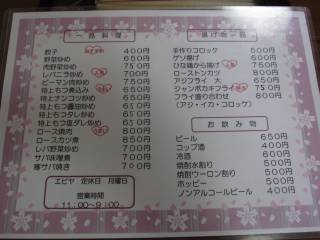 一品料理
餃子 400円
野菜炒め 650円
肉野菜炒め 750円
レバニラ炒め 700円
ピーマン肉炒め 750円
特上もつ煮込み 650円
特上ナンコツ炒め 650円
特上もつ醤油炒め 650円
特上もつタレ炒め 650円
特上もつ塩ダレ炒め 650円
ロース焼肉 800円
ロースカツ煮 850円
レバ野菜炒め 700円
サバ味噌煮 700円
塞サバ焼き 700円
エビヤ 定休日 月曜日
営業時間
11:00~9:00
揚げ物一品
手作りコロッケ 500円
ゲソ揚げ 600円
ひな鶏から揚げ 750円
ローストンカツ 800円
アジフライ 大 650円
ジャンボカキフライ 750円
フライ盛り合わせ 800円
(アジ・イカ・コロッケ)
お飲み物
ビール 650円
コップ酒 400円
冷酒 600円
焼酎水割り 500円
焼酎ウーロン割り 500円
ホッピー 500円
ノンアルコールビール 400円